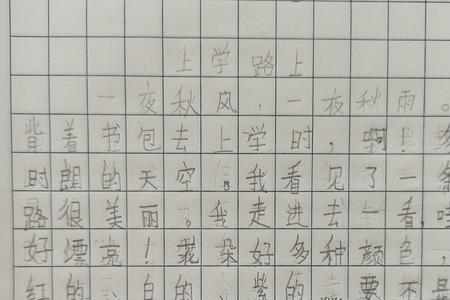 上学路上
一夜秋风,一夜秋雨。
背着书包去上学时,啊!
时朗的天空。我看见了一条
路很美丽。我走进去一看,哇
好漂亮!花朵好多种颜色,
红的 白的 紫的 要不是